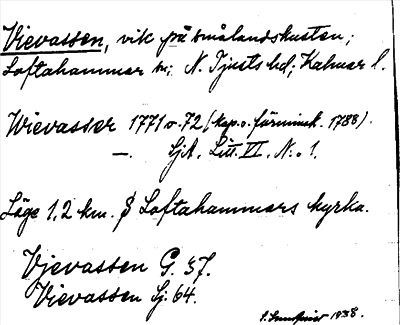 Vievassen, vik på smålandskusten;
Loftahammar sn; N. Tjusts hd; Kalmar l.
Wievasser 1771 o. 72 (kap. o. förminsk. 1788).
—. SjA. Litt. VI. N:o 1.
Läge 1,2 km. S Loftahammars kyrka.
Vjevassen G. 37.
Vievassen Sj. 64.
1938.